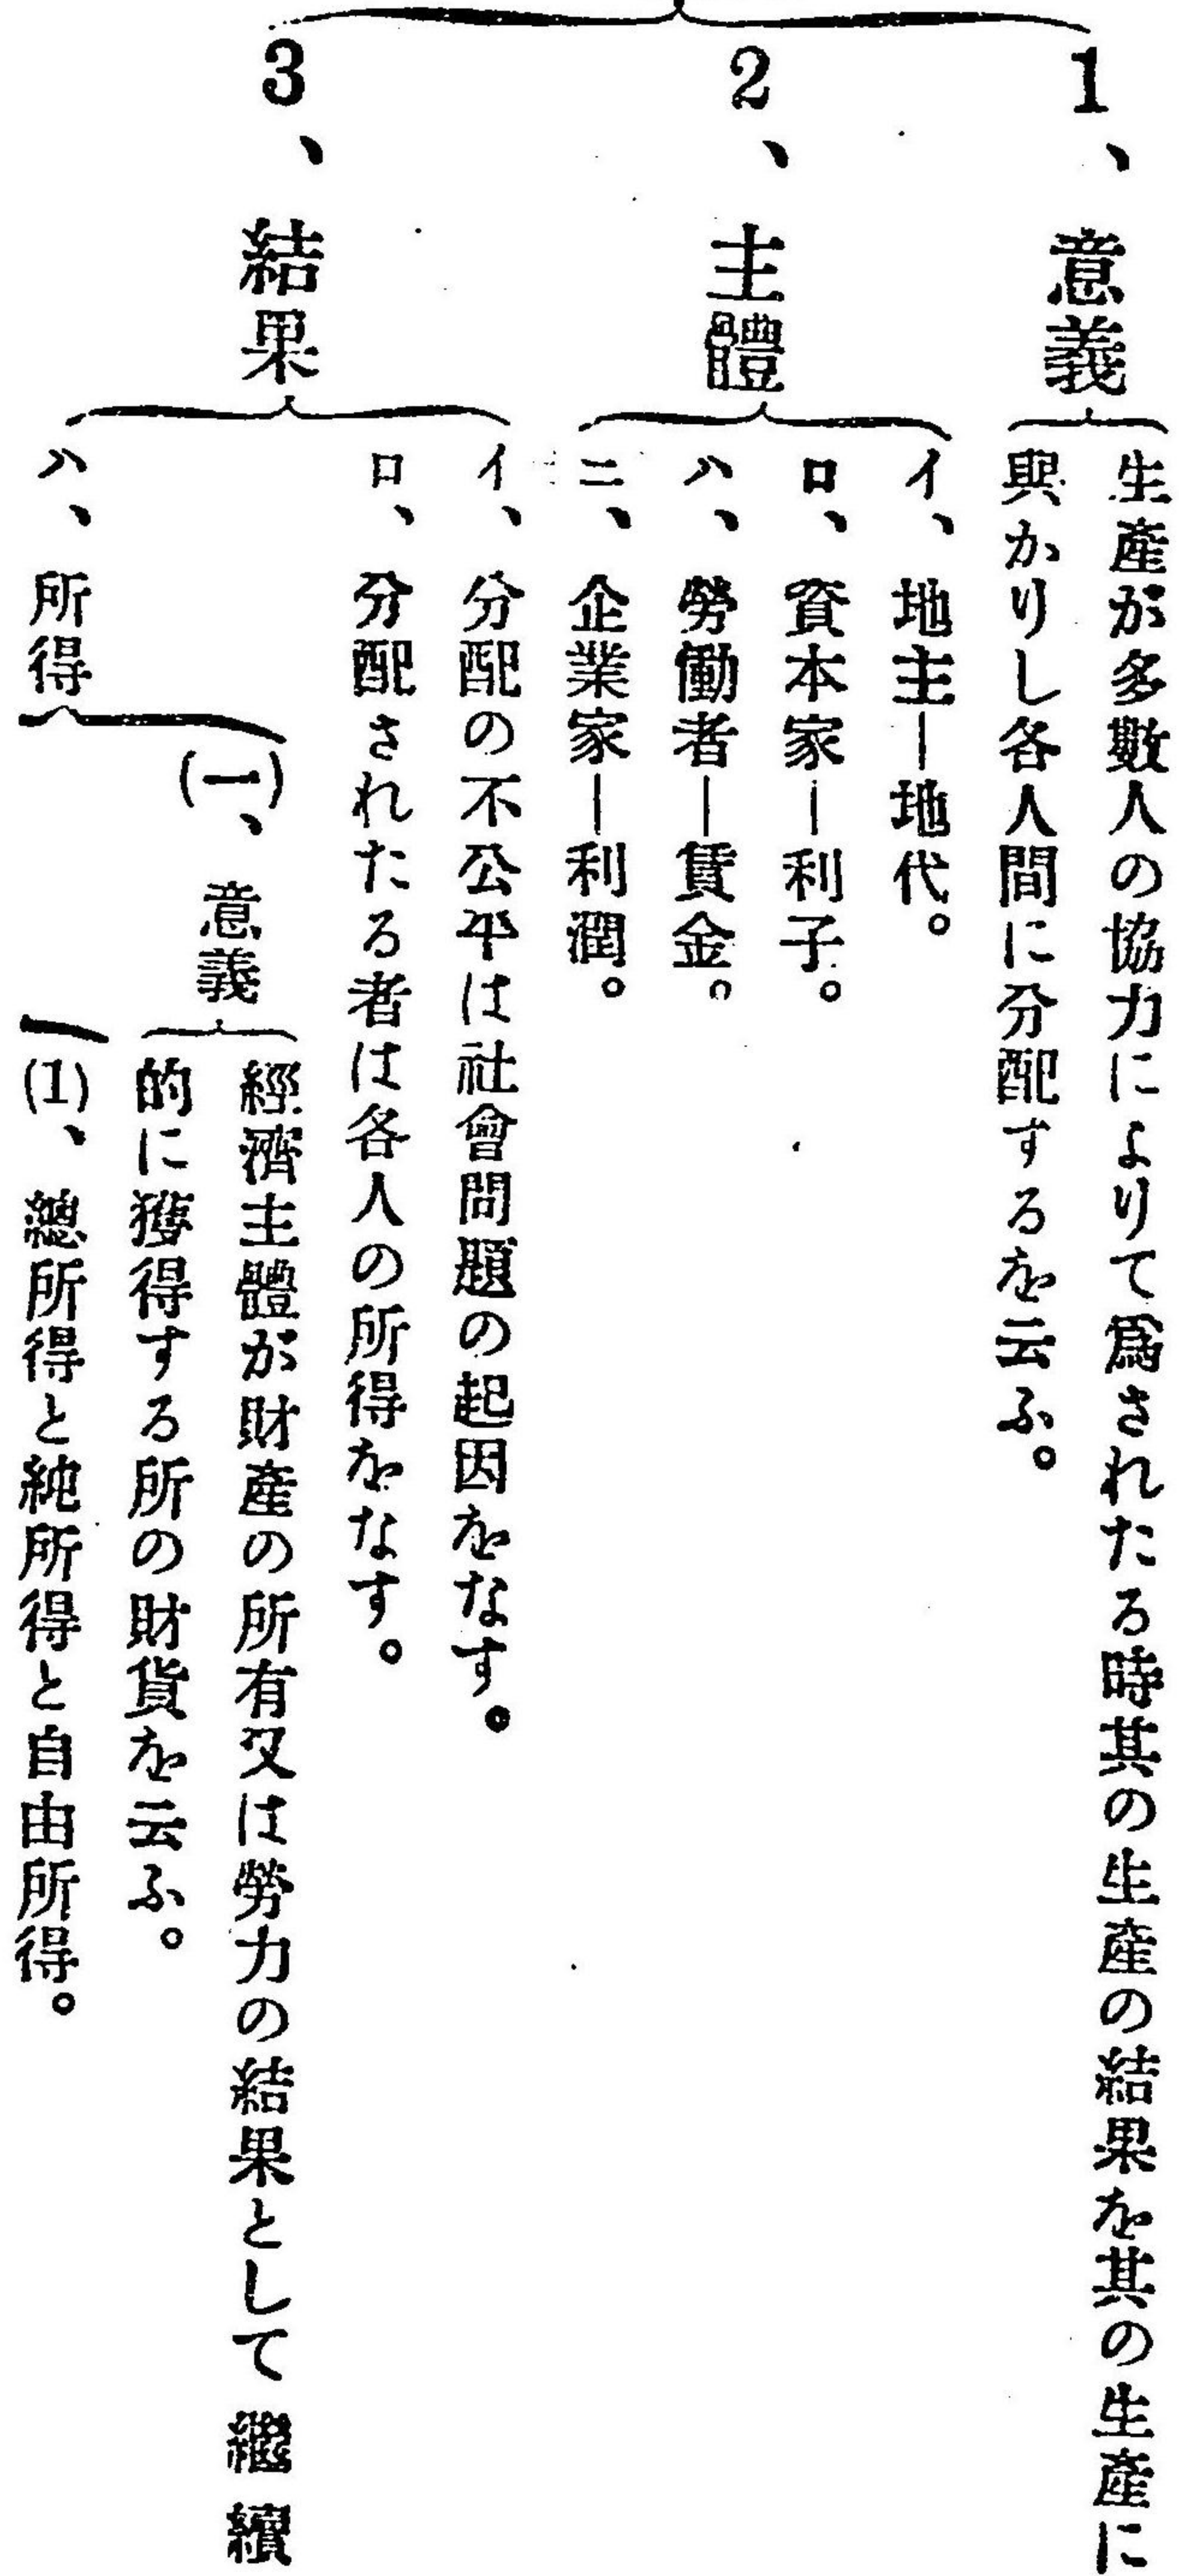 1、意義
生産が多數人の協力によりて爲されたる時其の生産の結果を其の生産に
與かりし各人間に分配するを云ふ。
2、主體
イ、地主―地代。
ロ、資本家―利子。
ハ、勞働者―賃金。
ニ、企業家―利潤。
3、結果
イ、分配の不公平は社會問題の起因をなす。
ロ、分配されたる者は各人の所得をなす。
ハ、所得
(一)、意義
經濟主體が財産の所有又は勞力の結果として繼續
的に獲得する所の財貨を云ふ。
(1)、總所得と純所得と自由所得。